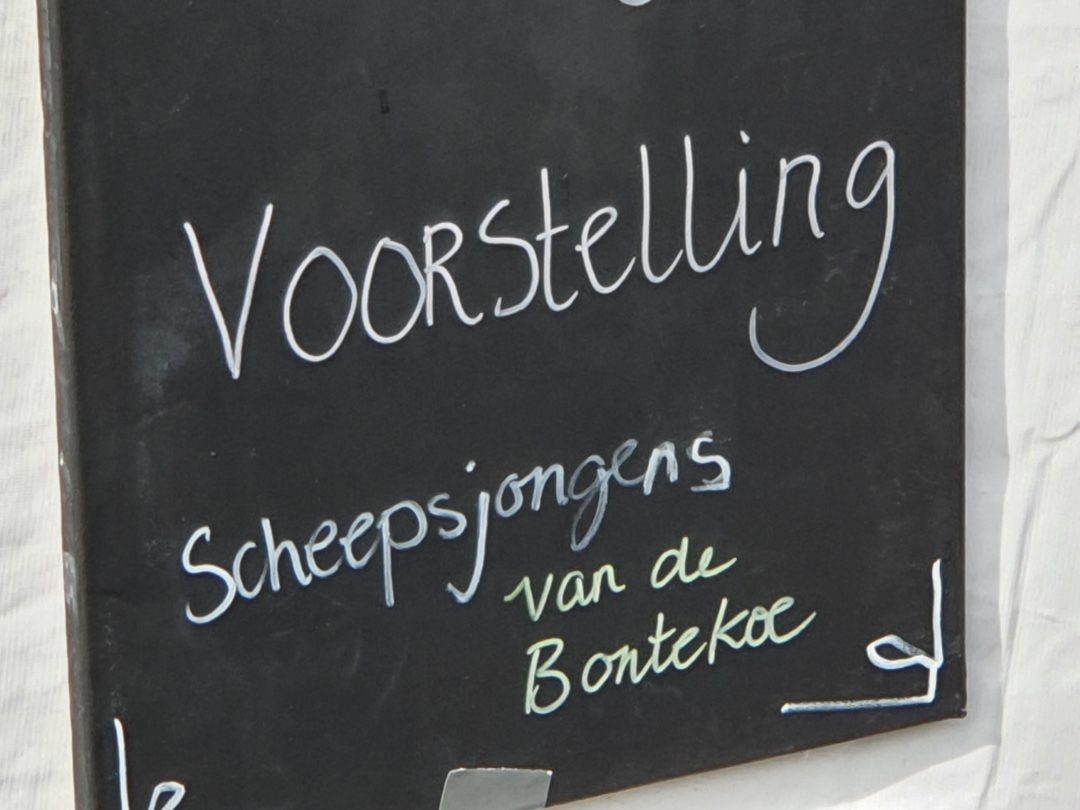 VOORStelling
Scheepsjongens
van de
Bontekoe